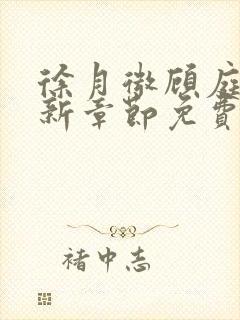 徐月微顾庭
新章节免费
褚中志